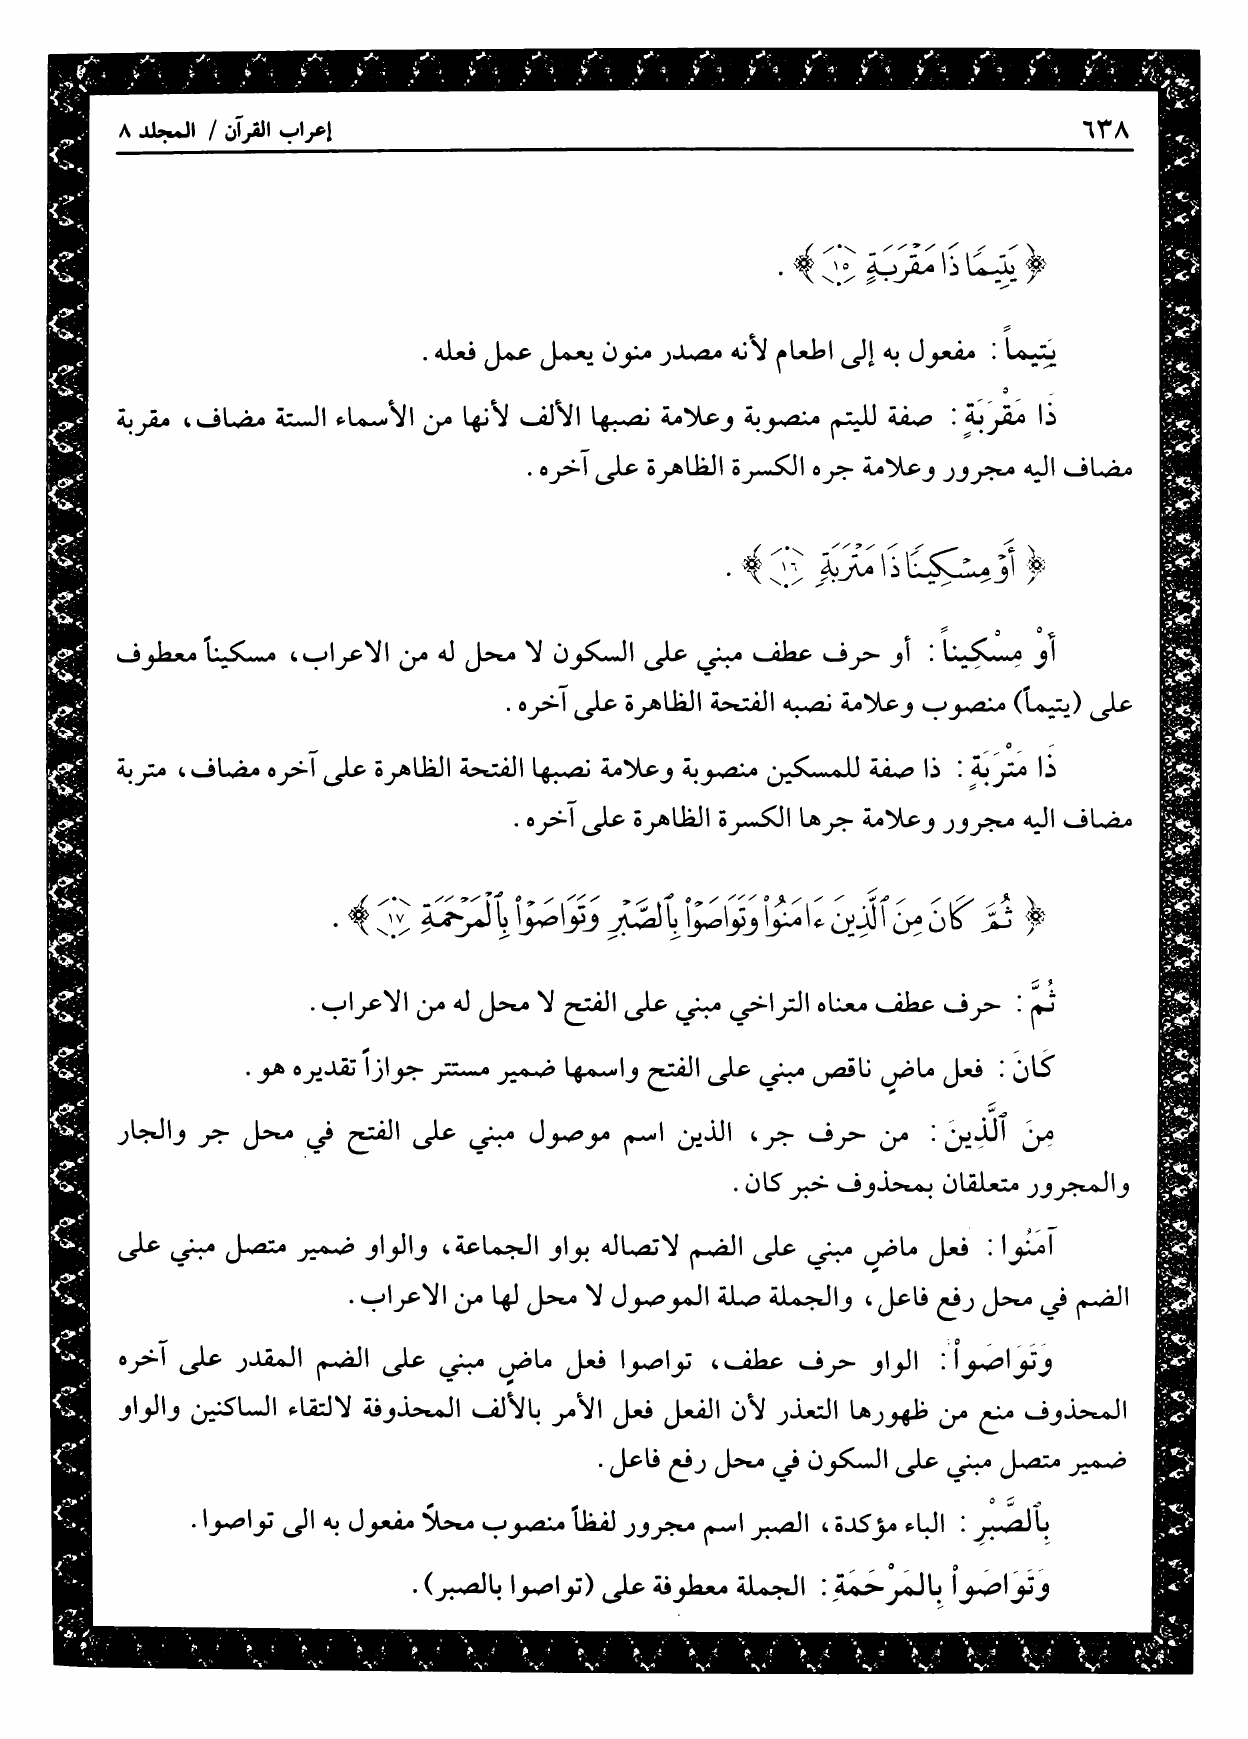 ٦٣٨
إعراب القرآن / المجلد ٨
﴿ يَتِيمًا ذَا مَقْرَبَةٍ ١٥ ﴾ .
يَتِيماً : مفعول به إلى اطعام لأنه مصدر منون يعمل عمل فعله .
ذَا مَقْرَبَةٍ : صفة لليتم منصوبة وعلامة نصبها الألف لأنها من الأسماء الستة مضاف، مقربة
مضاف اليه مجرور وعلامة جره الكسرة الظاهرة على آخره .
﴿ أَوْ مِسْكِينًا ذَا مَتْرَبَةٍ ١٦ ﴾ .
أَوْ مِسْكِيناً : أو حرف عطف مبني على السكون لا محل له من الاعراب، مسكيناً معطوف
على (يتيماً) منصوب وعلامة نصبه الفتحة الظاهرة على آخره .
ذَا مَتْرَبَةٍ : ذا صفة للمسكين منصوبة وعلامة نصبها الفتحة الظاهرة على آخره مضاف، متربة
مضاف اليه مجرور وعلامة جرها الكسرة الظاهرة على آخره .
﴿ ثُمَّ كَانَ مِنَ ٱلَّذِينَ ءَامَنُوا۟ وَتَوَاصَوْا۟ بِٱلصَّبْرِ وَتَوَاصَوْا۟ بِٱلْمَرْحَمَةِ ١٧ ﴾ .
ثُمَّ : حرف عطف معناه التراخي مبني على الفتح لا محل له من الاعراب .
كَانَ : فعل ماضٍ ناقص مبني على الفتح واسمها ضمير مستتر جوازاً تقديره هو .
مِنَ ٱلَّذِينَ : من حرف جر، الذين اسم موصول مبني على الفتح في محل جر والجار
والمجرور متعلقان بمحذوف خبر كان .
آمَنُوا : فعل ماضٍ مبني على الضم لاتصاله بواو الجماعة، والواو ضمير متصل مبني على
الضم في محل رفع فاعل، والجملة صلة الموصول لا محل لها من الاعراب .
وَتَوَاصَوْاْ : الواو حرف عطف، تواصوا فعل ماضٍ مبني على الضم المقدر على آخره
المحذوف منع من ظهورها التعذر لأن الفعل فعل الأمر بالألف المحذوفة لالتقاء الساكنين والواو
ضمير متصل مبني على السكون في محل رفع فاعل .
بِٱلصَّبْرِ : الباء مؤكدة، الصبر اسم مجرور لفظاً منصوب محلاً مفعول به الى تواصوا .
وَتَوَاصَواْ بِالمَرْحَمَةِ : الجملة معطوفة على (تواصوا بالصبر) .